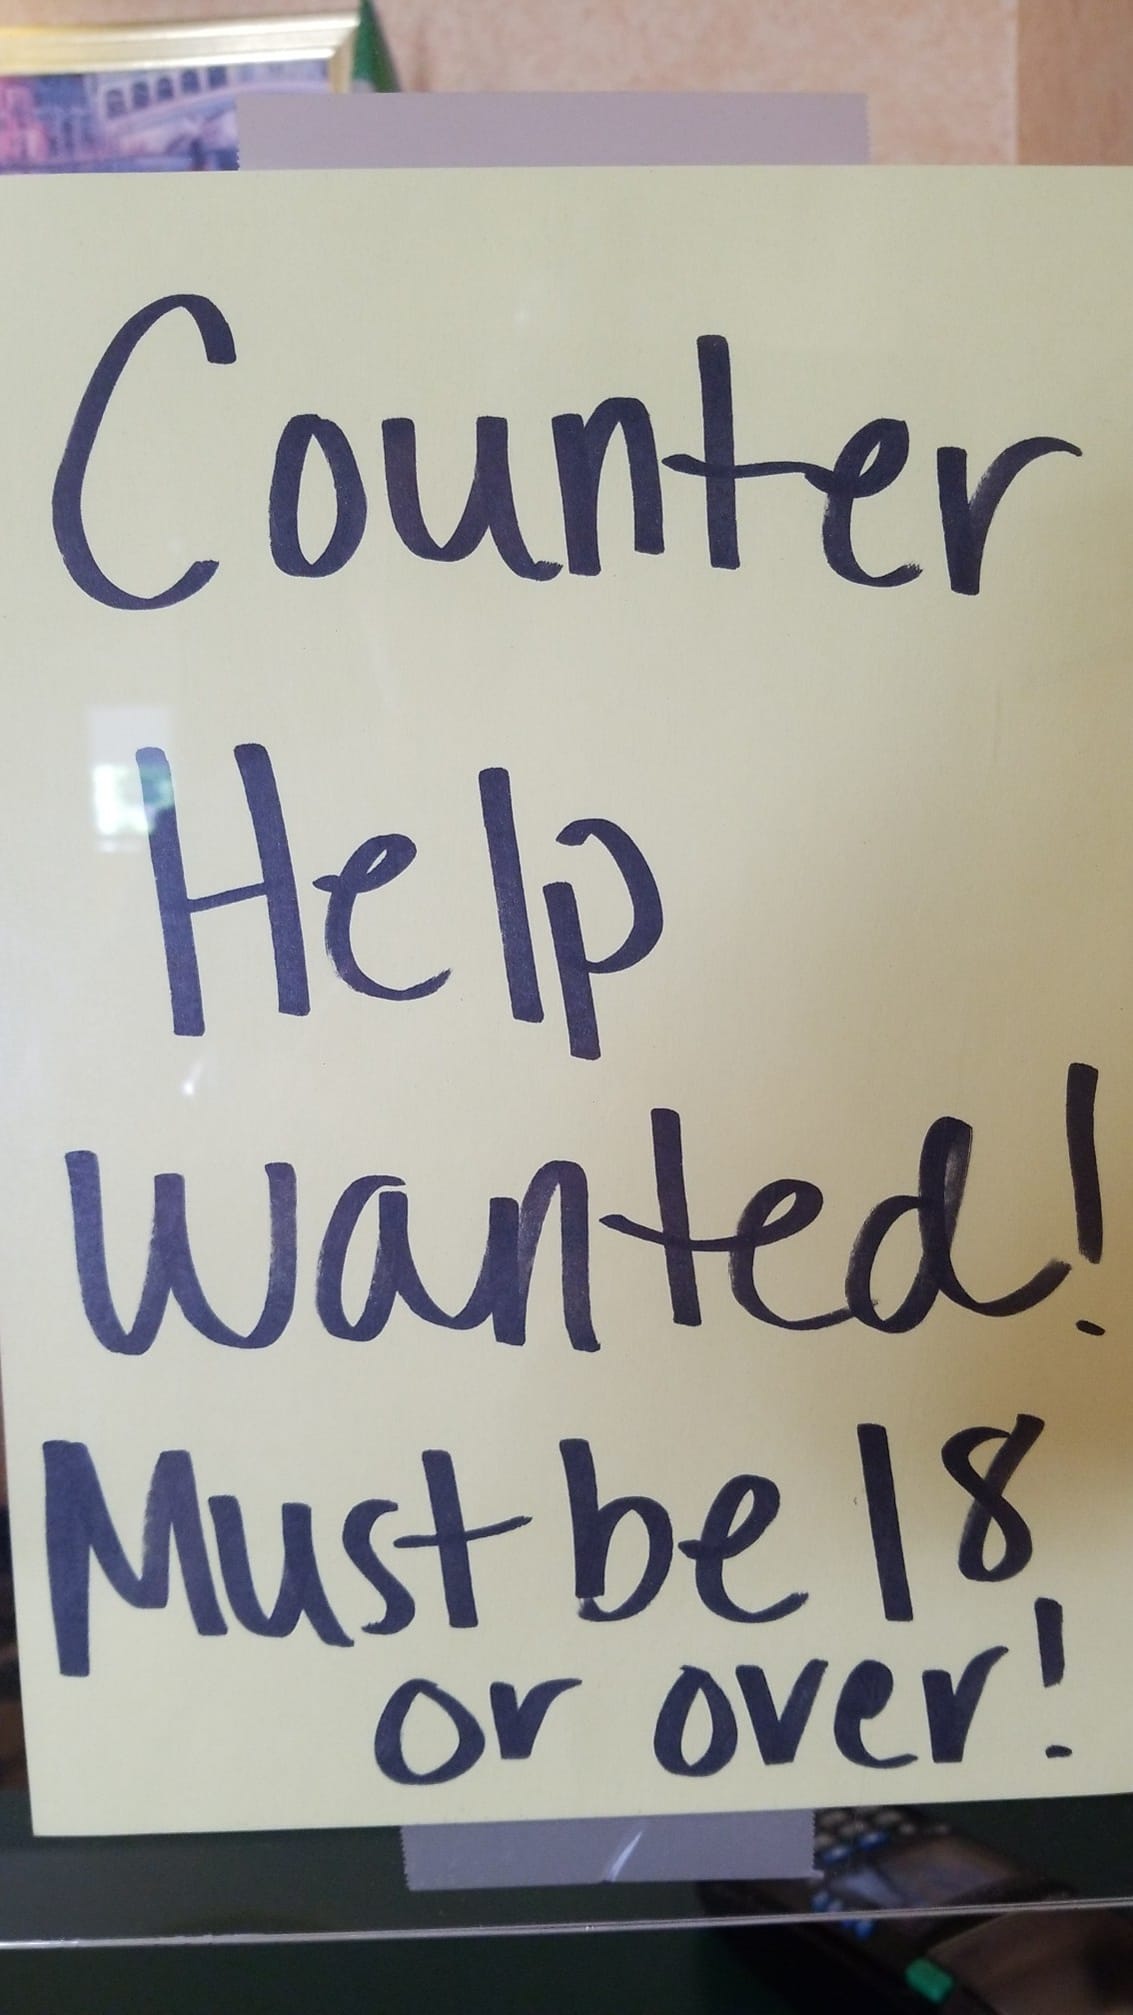 Counter
Help
Wanted!
Must be 18
or over!